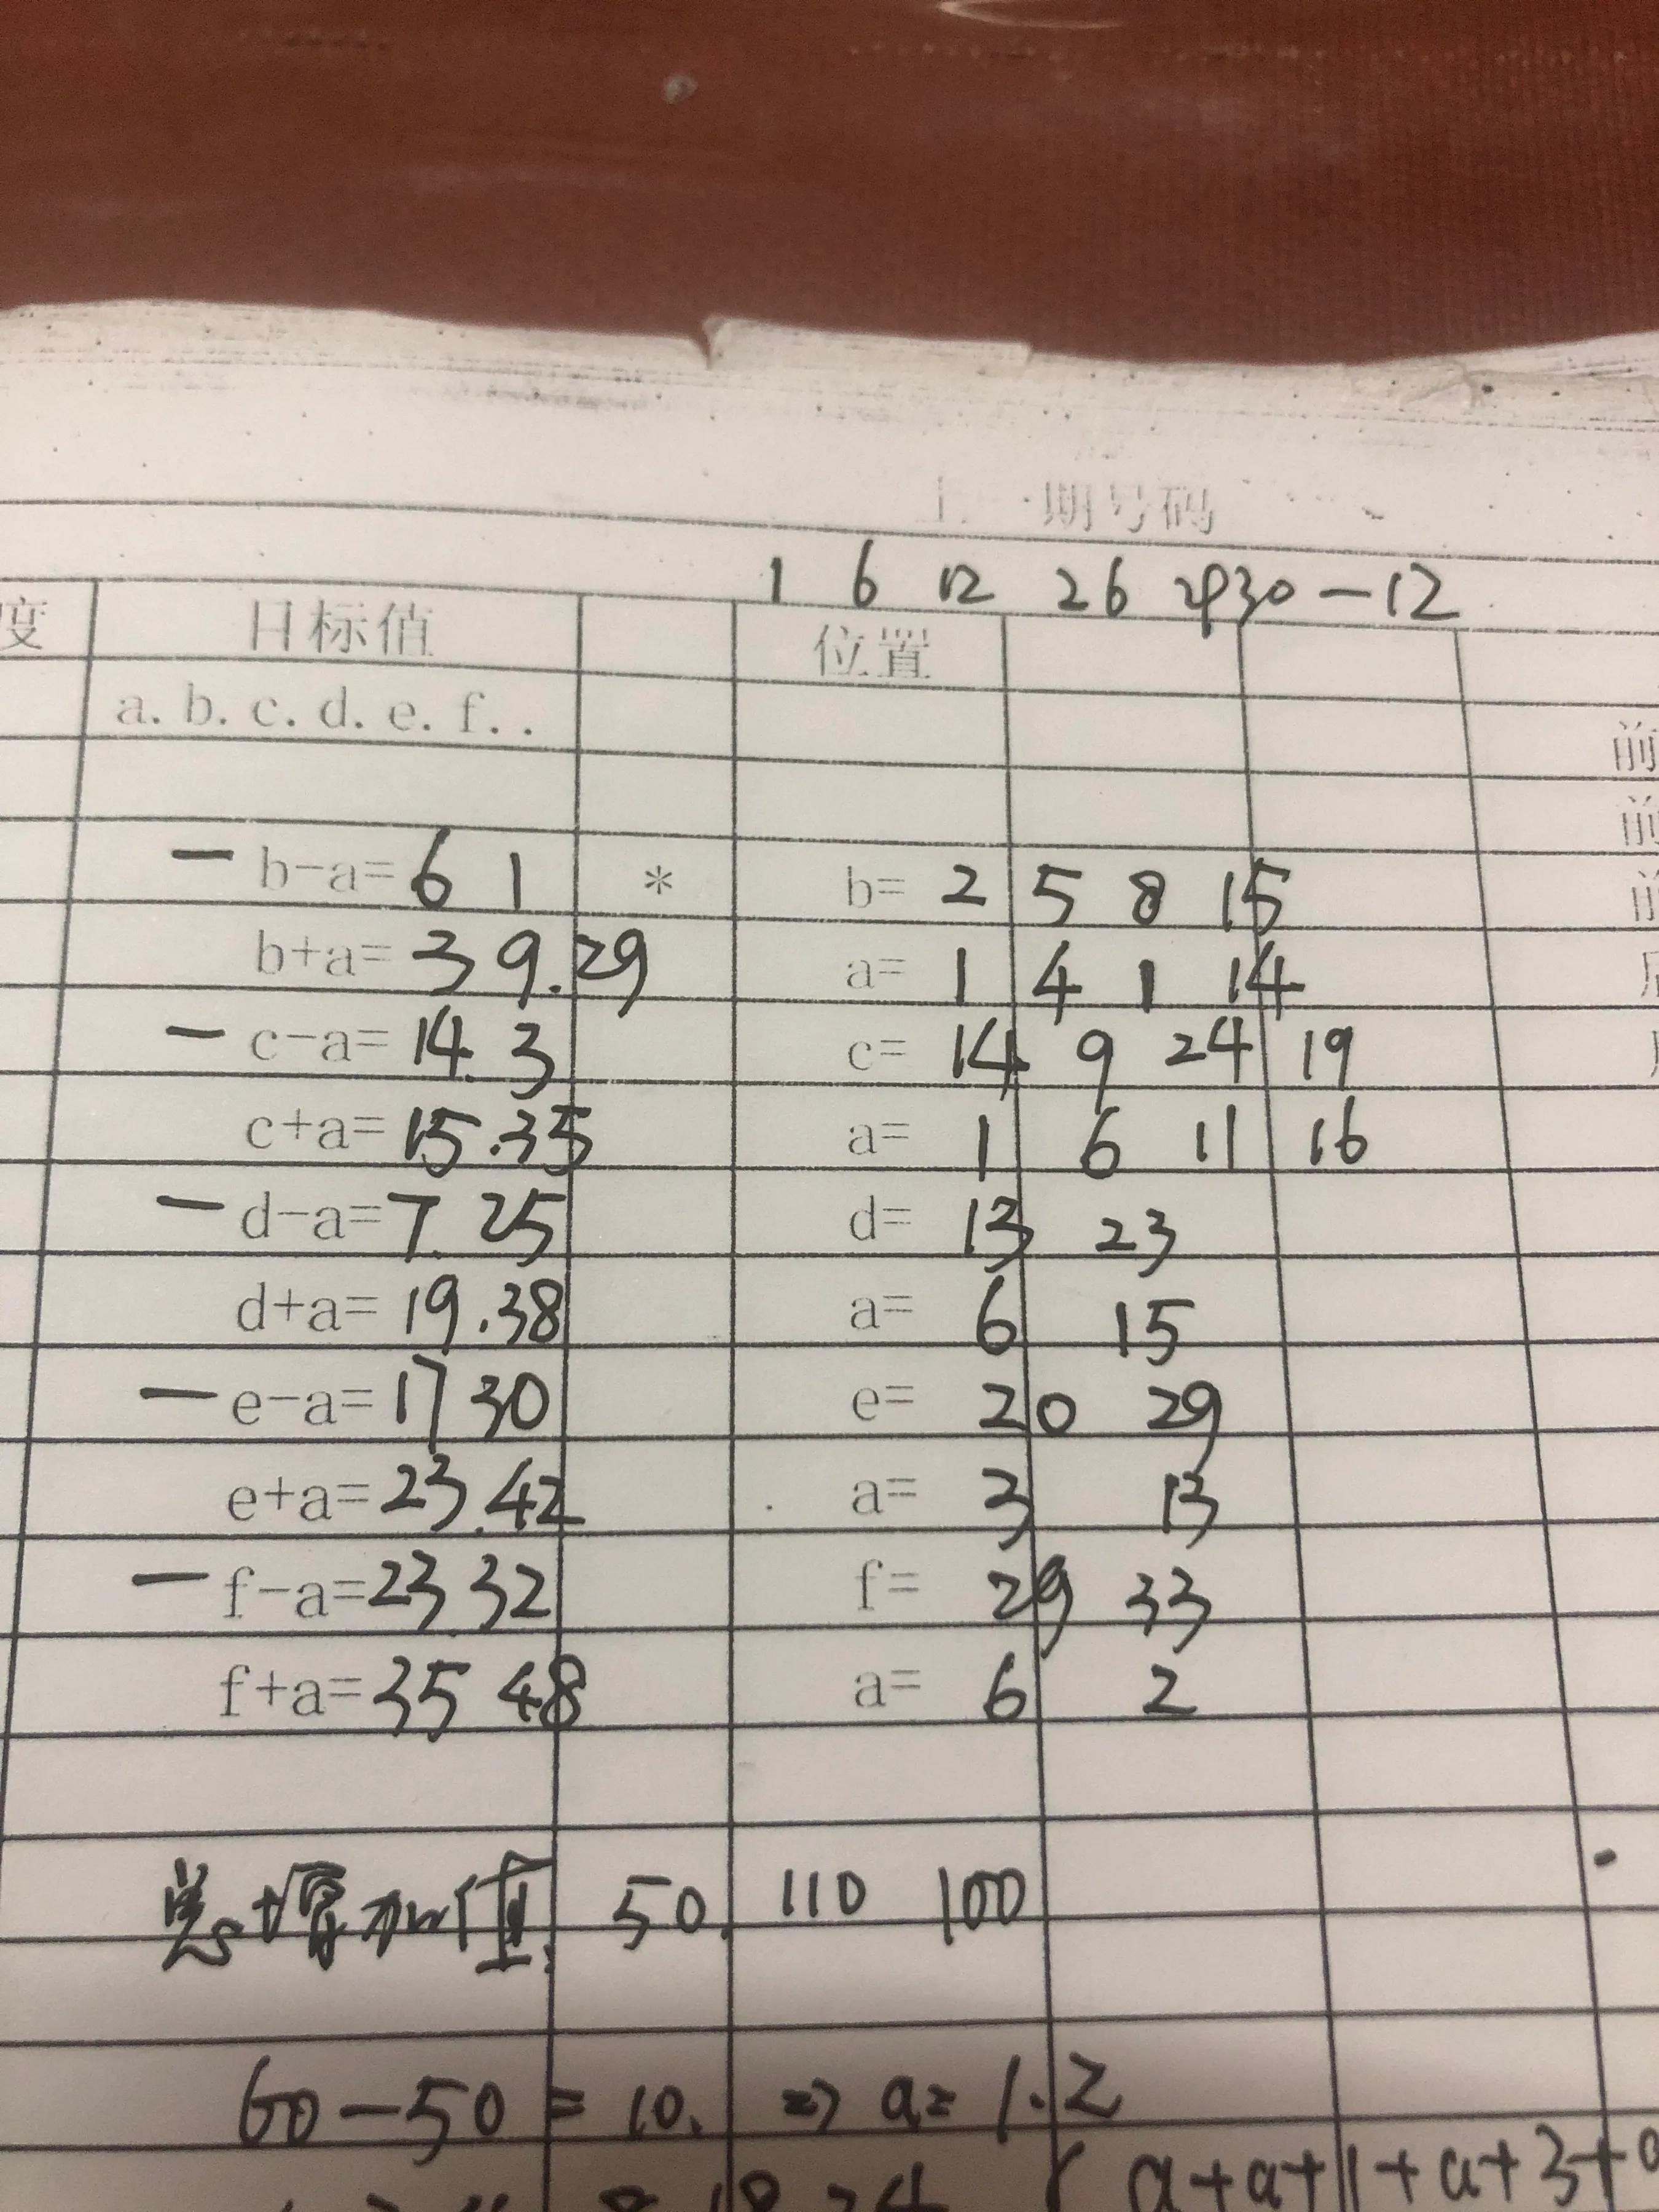 上一期号码
1 6 12 26 29 30 - 12
度 目标值 位置
a. b. c. d. e. f. .
前
前
- b-a= 6 1 * b= 2 5 8 15
b+a= 3 9. 29 a= 1 4 1 14
- c-a= 14. 3 c= 14 9 24 19
c+a= 15. 35 a= 1 6 11 16
- d-a= 7. 25 d= 13 23
d+a= 19. 38 a= 6 15
- e-a= 17 30 e= 20 29
e+a= 23. 42 a= 3 13
- f-a= 23. 32 f= 29 33
f+a= 35 48 a= 6 2
总增加值. 50. 110 100
60-50 = 10. => a= 1.2
a+a+1+a+3+